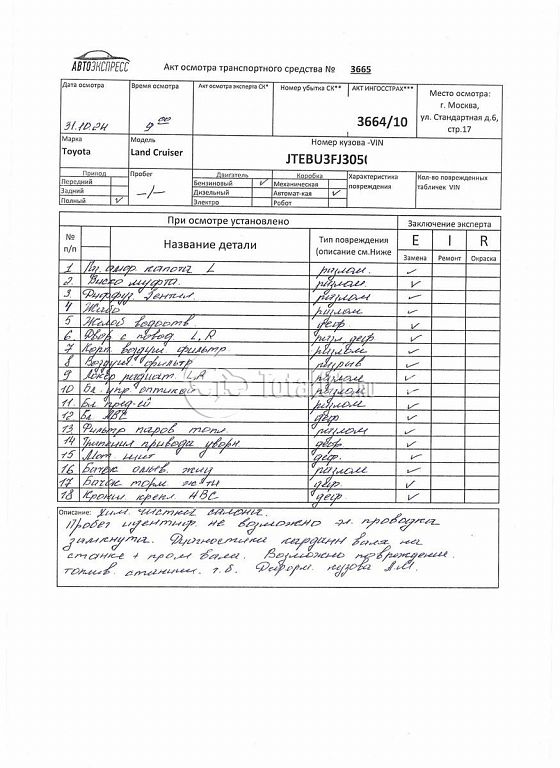 АВТОЭКСПРЕСС
Акт осмотра транспортного средства № 3665
Дата осмотра Время осмотра Акт осмотра эксперта СК* Номер убытка СК** АКТ ИНГОССТРАХ*** Место осмотра:
г. Москва,
ул. Стандартная д.6,
стр.17
31.10.24 9 00 3664/10
Марка Модель Номер кузова -VIN
Toyota Land Cruiser JTEBU3FJ305
Привод Пробег Двигатель Коробка Характеристика повреждения Кол-во поврежденных табличек VIN
Передний Бензиновый ✓ Механическая
Задний -/- Дизельный Автомат-кая ✓
Полный ✓ Электро Робот
При осмотре установлено Заключение эксперта
№ п/п Название детали Тип повреждения (описание см.Ниже E I R
Замена Ремонт Окраска
1 капота L разлом. ✓
2. муфта. разлом. ✓
3. разлом ✓
4 разлом ✓
5 Желоб водоотв деф. ✓
6 с повод L,A деф ✓
7 Корп воздуш фильтр разлом ✓
8 Воздуш фильтр разрыв ✓
9 L,A разлом ✓
10 Бл. упр. оптикой разлом ✓
11. Бл пред-ей разлом ✓
12 Бл АВС деф ✓
13 Фильтр паров топл. разлом ✓
14 привода деф. ✓
15 Мот. щит деф. ✓
16 Бачок омыв. жид разлом ✓
17 Бачок торм ж-ти деф. ✓
18 Кронш крепл АВС деф ✓
Описание: Хим. чистка салона.
Пробег идентиф не возможно эл. проводка
замкнута. Диагностика карданн вала на
станке + пром вала. Возможно повреждение.
топлив. Деформ. кузова
TotalCar